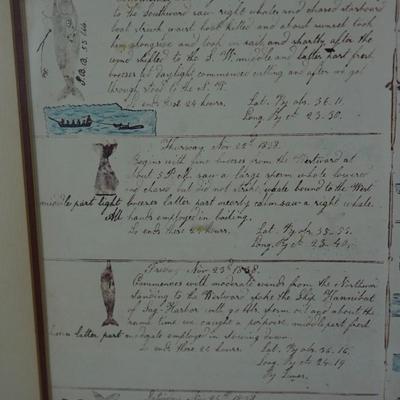 to the Southward saw right whales and chased starboard
boat struck waist boat killed and about sunset took
him alongside and took in sail and shortly after the
wind shifted to the S. W. middle and latter part fresh
breezes at daylight commenced cutting and after we got
through stood to the N. W.
So ends these 24 hours. Lat. By obs. 36-11.
Long. By ct. 23-30.
Thursday Nov. 22d 1838.
Begins with fine breezes from the Westward at
about 5 P.M. saw a large sperm whale lowered
and chased but did not strike whale bound to the West
middle part light breezes latter part nearly calm saw a right whale.
All hands employed in boiling. Lat. By obs. 35-55.
So ends these 24 hours. Long. By ct 23-40.
Friday Nov 23d 1838.
Commences with moderate winds from the Northward
standing to the Westward spoke the Ship Hannibal
of Sag-Harbor with 60 bbls. sperm oil and about the
same time we caught a porpoise. middle part fresh
latter part moderate employed in stowing down.
So ends these 24 hours. Lat. By obs. 36-16.
Long. By ct 24-19
By Lunar.
Saturday Nov 24th 1838